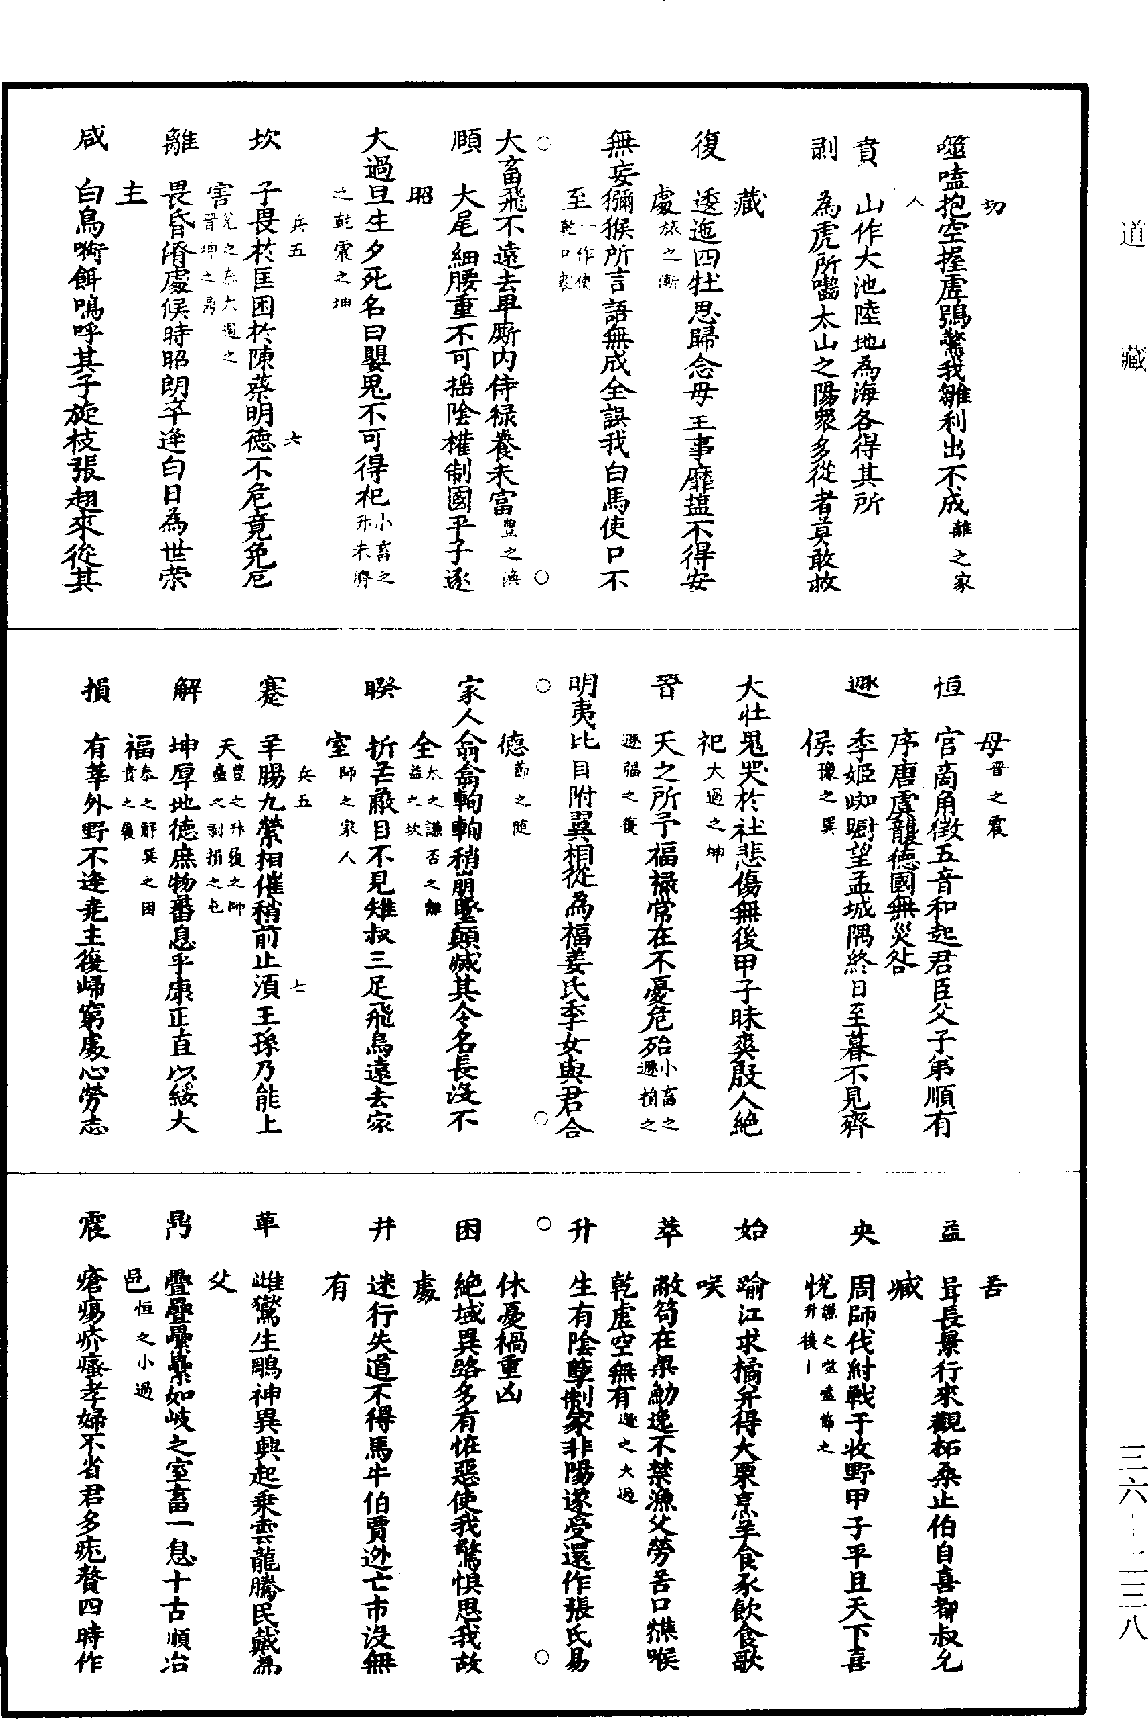 道藏
三六—二三八
切
噬嗑抱空握虛鴞驚我雛利出不成離之家
人
賁　山作大池陸地為海各得其所
剝　為虎所嚙太山之陽眾多從者莫敢救
藏
復　逶迤四牡思歸念母王事靡盬不得安
處旅之漸
無妄獼猴所言語無成全誤我白馬使口不
至一作使乾口來
大畜飛不遠去卑廝內侍祿養未富豐之渙
頤　大尾細腰重不可搖陰權制國平子逐
昭
大過旦生夕死名曰嬰鬼不可得祀小畜之升未濟
之乾震之坤
兵五　六
坎　子畏於匡困於陳蔡明德不危竟免厄
害羌之泰大過之晉坤之鼎
離　畏昏潛處候時昭朗卒逢白日為世榮
主
咸　白鳥銜餌鳴呼其子旋枝張翅來從其
母晉之震
恒　官商角徵五音和起君臣父子弟順有
序唐虞龍德國無災咎
遯　季姬踟躕望孟城隅終日至暮不見齊
侯豫之巽
大壯鬼哭於社悲傷無後甲子昧爽殷人絕
祀大過之坤
晉　天之所予福祿常在不憂危殆小畜之遯損之
遯福之復
明夷比目附翼相從為福姜氏季女與君合
德節之隨
家人翕翕軥軥稍崩墜顛滅其令名長沒不
全大之謙否之離益之坎
睽　折若蔽目不見雉叔三足飛烏遠去家
室師之家人
兵五　七
蹇　羊腸九縈相催稍前止須王孫乃能上
天豐之升復之師盧之剝損之屯
解　坤厚地德庶物蕃息平康正直以綏大
福泰之解巽之困賁之復
損　有莘外野不逢堯主復歸窮處心勞志
苦
益　耳長景行來觀柘桑止伯自喜都叔允
臧
夬　周師伐紂戰于牧野甲子平旦天下喜
悅謙之噬嗑節之升復
姤　踰江求橘并得大栗烹羊食豕飲食歌
𠸄
萃　敝笱在梁魴逸不禁漁父勞苦口燋喉
乾虛空無有遯之大過
升　生有陰孽制家非陽遂受還作張氏易
休憂禍重凶
困　絕域異路多有怪惡使我驚懼思我故
處
井　迷行失道不得馬牛伯賈逊亡市沒無
有
革　雌鷙生鵰神異興起乘雲龍騰民戴為
父
鼎　疊疊纍纍如岐之室畜一息十古順冶
邑恒之小過
震　瘡瘍疥瘙孝婦不省君多疣贅四時作